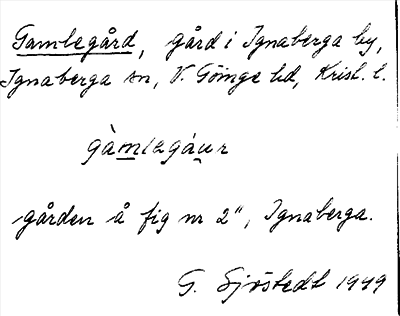 Gamlegård, gård i Ignaberga by,
Ignaberga sn, V. Göinge hd, Krist. l.
gàmlegáur
gården å fig nr 2", Ignaberga.
G. Sjöstedt 1949